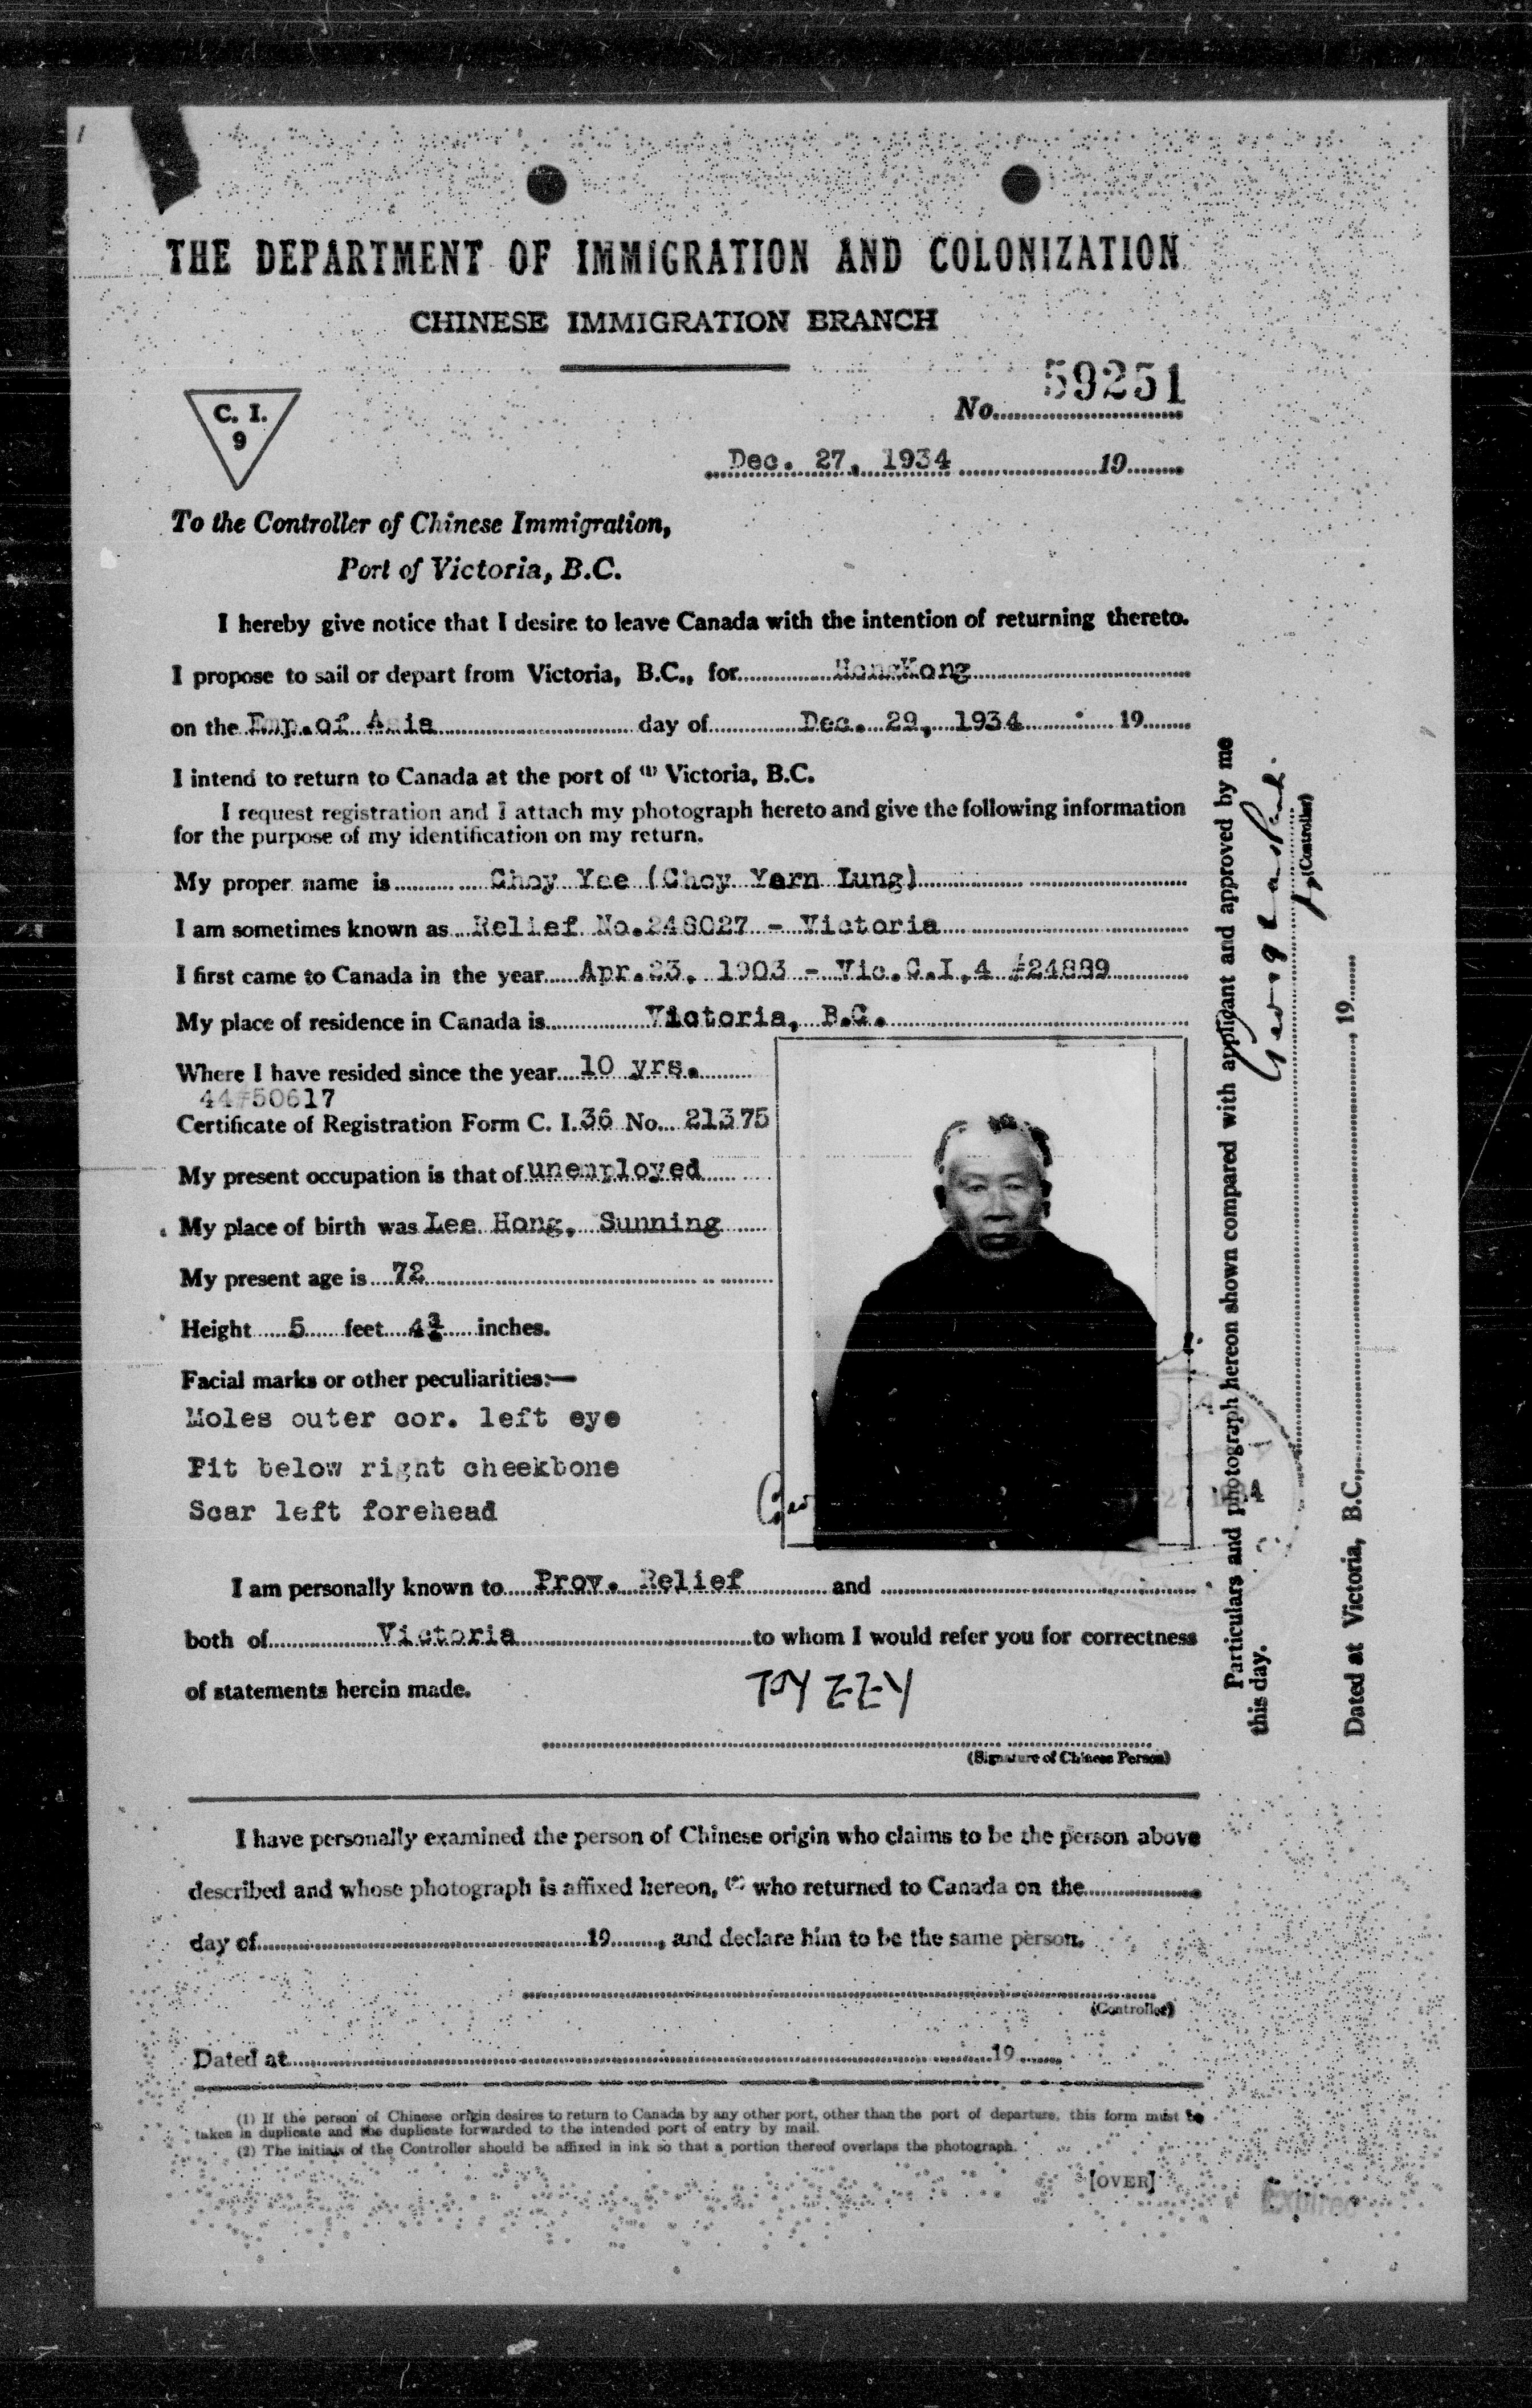 THE DEPARTMENT OF IMMIGRATION AND COLONIZATION
CHINESE IMMIGRATION BRANCH
C. I.
9
No. 59251
Dec. 27, 1934 19
To the Controller of Chinese Immigration,
Port of Victoria, B.C.
I hereby give notice that I desire to leave Canada with the intention of returning thereto.
I propose to sail or depart from Victoria, B.C., for HongKong
on the Emp.of Asia day of Dec. 29, 1934 19
I intend to return to Canada at the port of (1) Victoria, B.C.
I request registration and I attach my photograph hereto and give the following information
for the purpose of my identification on my return.
My proper name is Choy Yee (Choy Yarn Lung)
I am sometimes known as Relief No.248027 - Victoria
I first came to Canada in the year Apr.23, 1903 - Vic.C.I.4 #24889
My place of residence in Canada is Victoria, B.C.
Where I have resided since the year 10 yrs.
44#50617
Certificate of Registration Form C. I. 36 No. 21375
My present occupation is that of unemployed
My place of birth was Lee Hong, Sunning
My present age is 72
Height 5 feet 4¾ inches.
Facial marks or other peculiarities:—
Moles outer cor. left eye
Pit below right cheekbone
Scar left forehead
Geo
I am personally known to Prov. Relief and
both of Victoria to whom I would refer you for correctness
of statements herein made.
(Signature of Chinese Person)
I have personally examined the person of Chinese origin who claims to be the person above
described and whose photograph is affixed hereon, (2) who returned to Canada on the
day of 19, and declare him to be the same person.
(Controller)
Dated at 19
(1) If the person of Chinese origin desires to return to Canada by any other port, other than the port of departure, this form must be
taken in duplicate and the duplicate forwarded to the intended port of entry by mail.
(2) The initials of the Controller should be affixed in ink so that a portion thereof overlaps the photograph.
[OVER]
Expired
Particulars and photograph hereon shown compared with applicant and approved by me
this day.
(Controller)
Dated at Victoria, B.C., 19